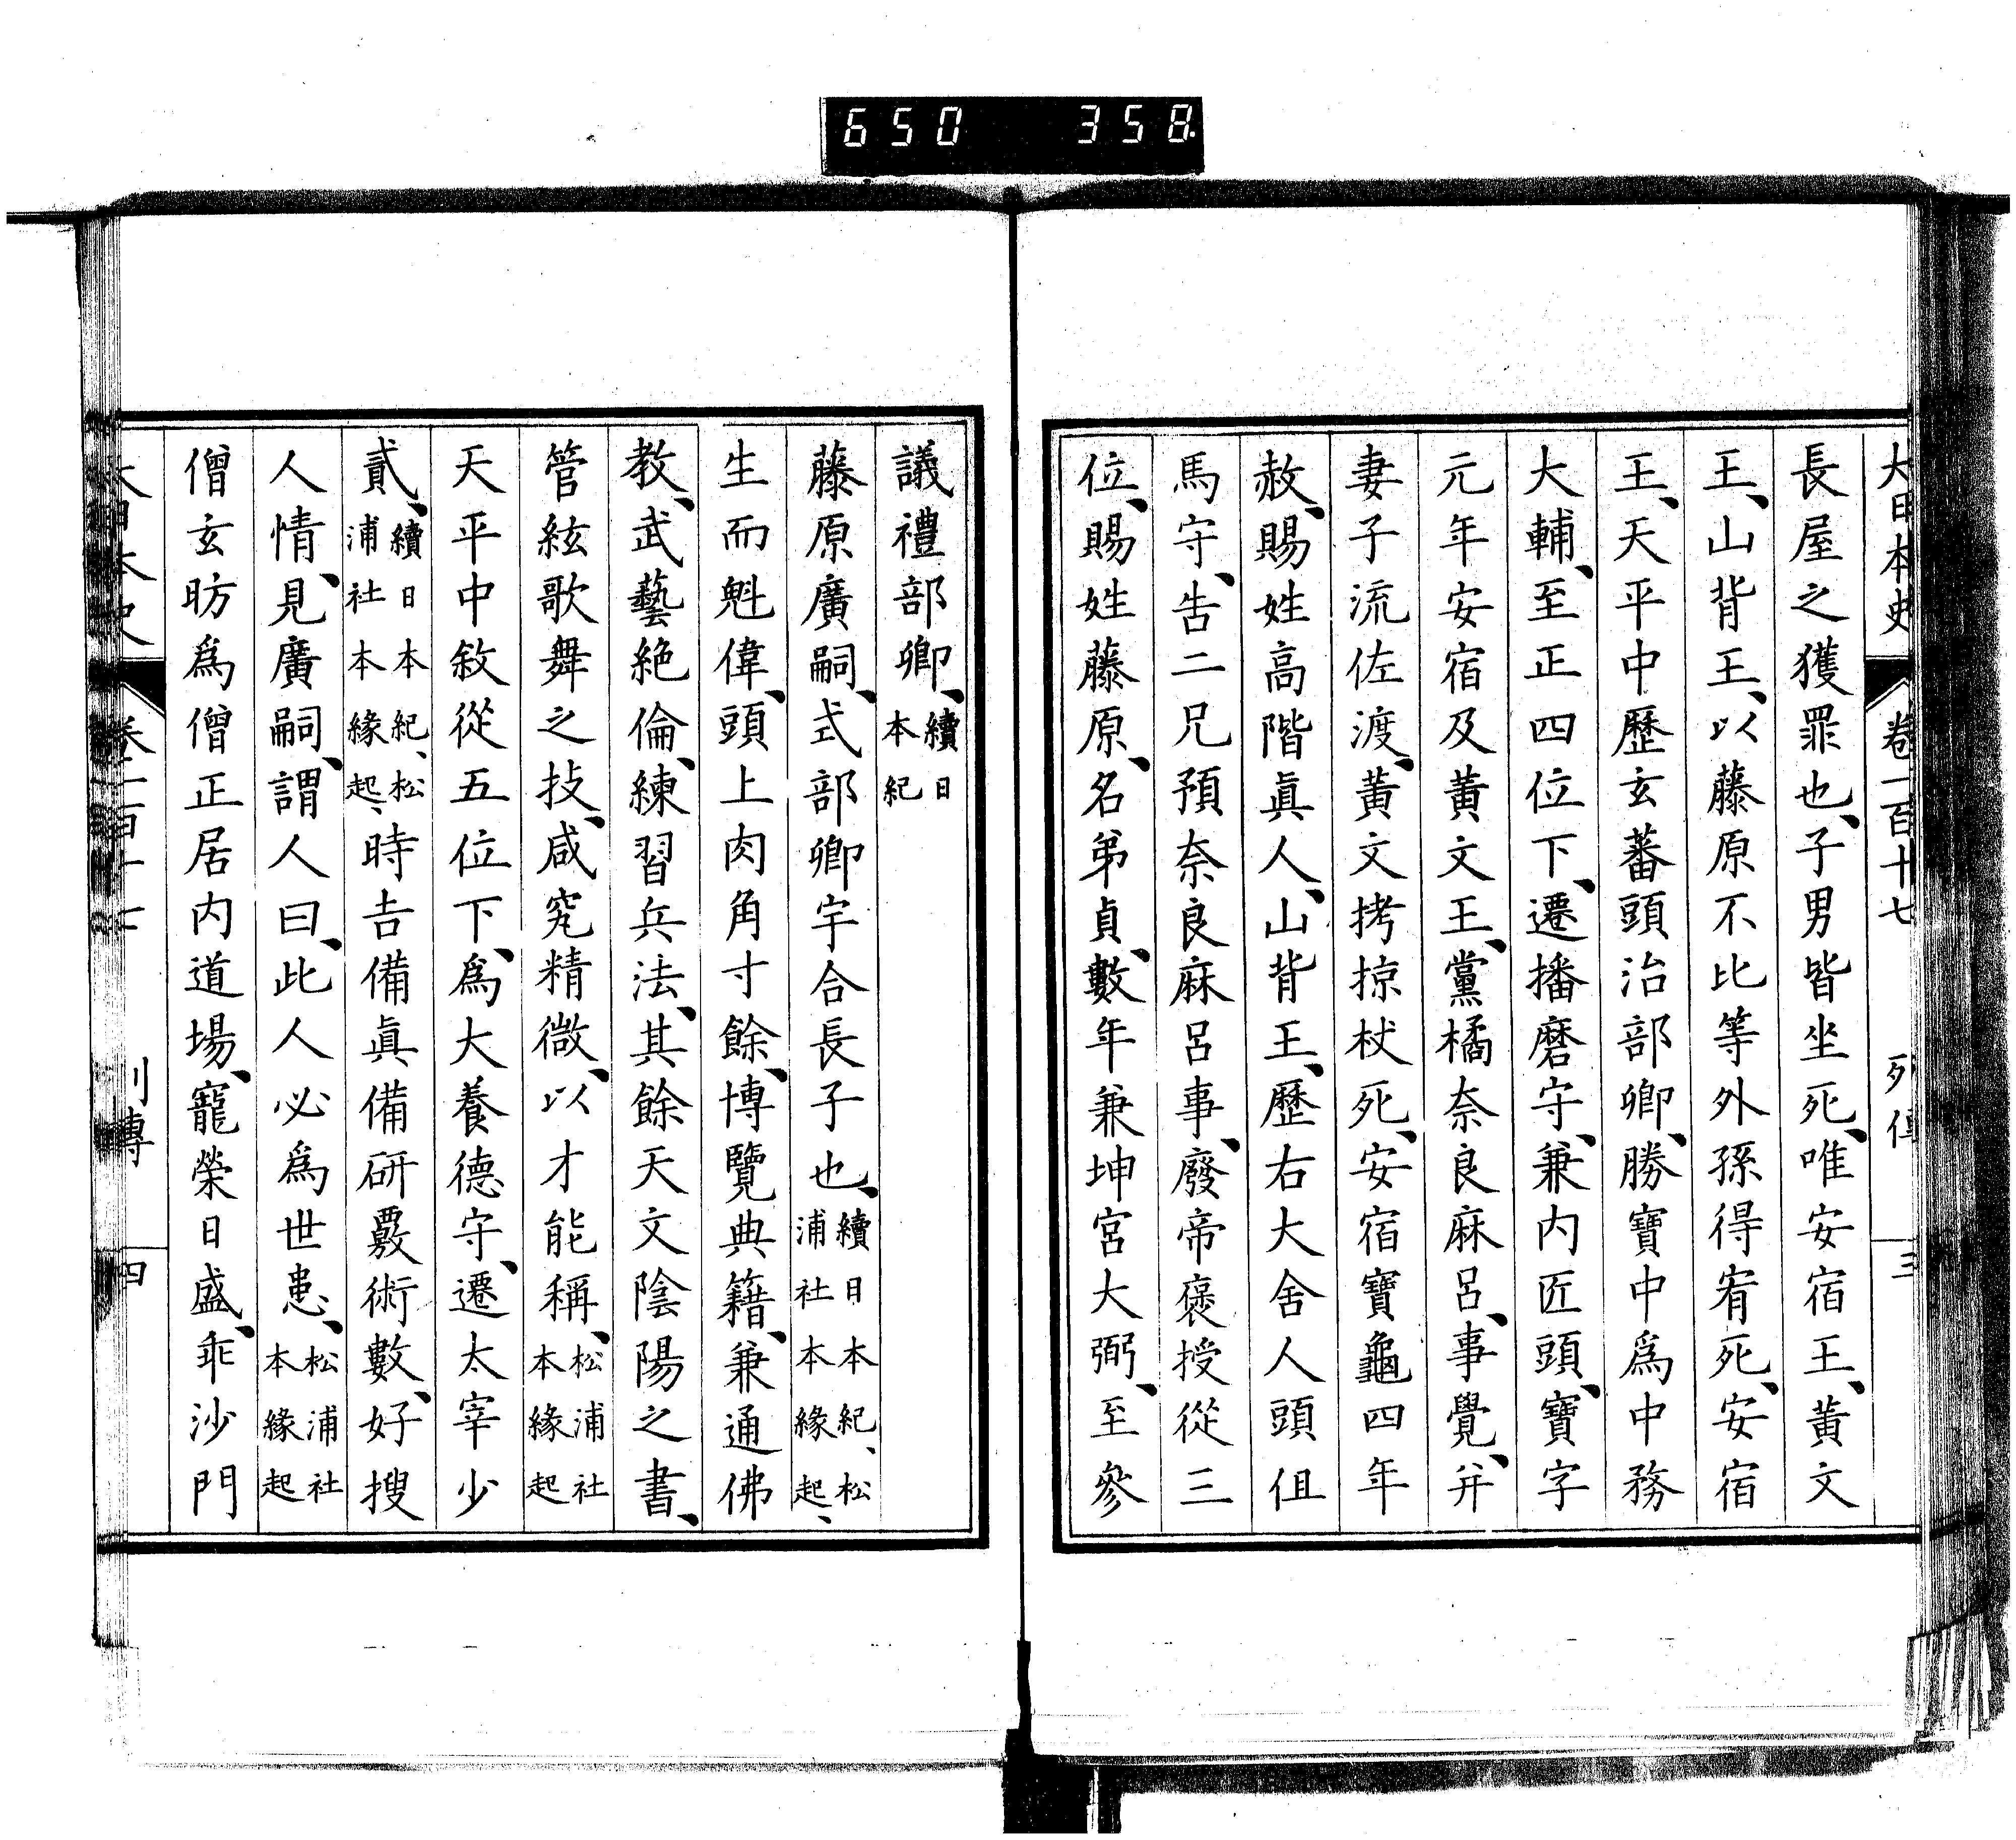 650 358
大日本史 卷一百十七 列傳 三
長屋之獲罪也、子男皆坐死、唯安宿王、黃文
王、山背王、以藤原不比等外孫得宥死、安宿
王、天平中歷玄蕃頭治部卿、勝寶中爲中務
大輔、至正四位下、遷播磨守、兼內匠頭、寶字
元年安宿及黃文王、黨橘奈良麻呂、事覺、幷
妻子流佐渡、黃文拷掠杖死、安宿寶龜四年
赦、賜姓高階眞人、山背王、歷右大舍人頭但
馬守、告二兄預奈良麻呂事、廢帝褒授從三
位、賜姓藤原、名弟貞、數年兼坤宮大弼、至參
議禮部卿、續日本紀
藤原廣嗣、式部卿宇合長子也、續日本紀、松浦社本緣起、
生而魁偉、頭上肉角寸餘、博覽典籍、兼通佛
教、武藝絶倫、練習兵法、其餘天文陰陽之書、
管絃歌舞之技、咸究精微、以才能稱、松浦社本緣起
天平中敘從五位下、爲大養德守、遷太宰少
貳、續日本紀、松浦社本緣起、時吉備眞備研覈術數、好搜
人情、見廣嗣、謂人曰、此人必爲世患、松浦社本緣起
僧玄昉爲僧正居內道場、寵榮日盛、乖沙門
大日本史 卷一百十七 列傳 四